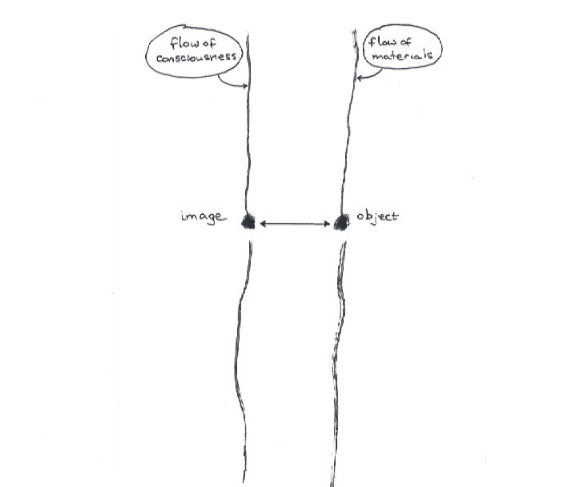 flow of
consciousness
flow of
materials
image
object